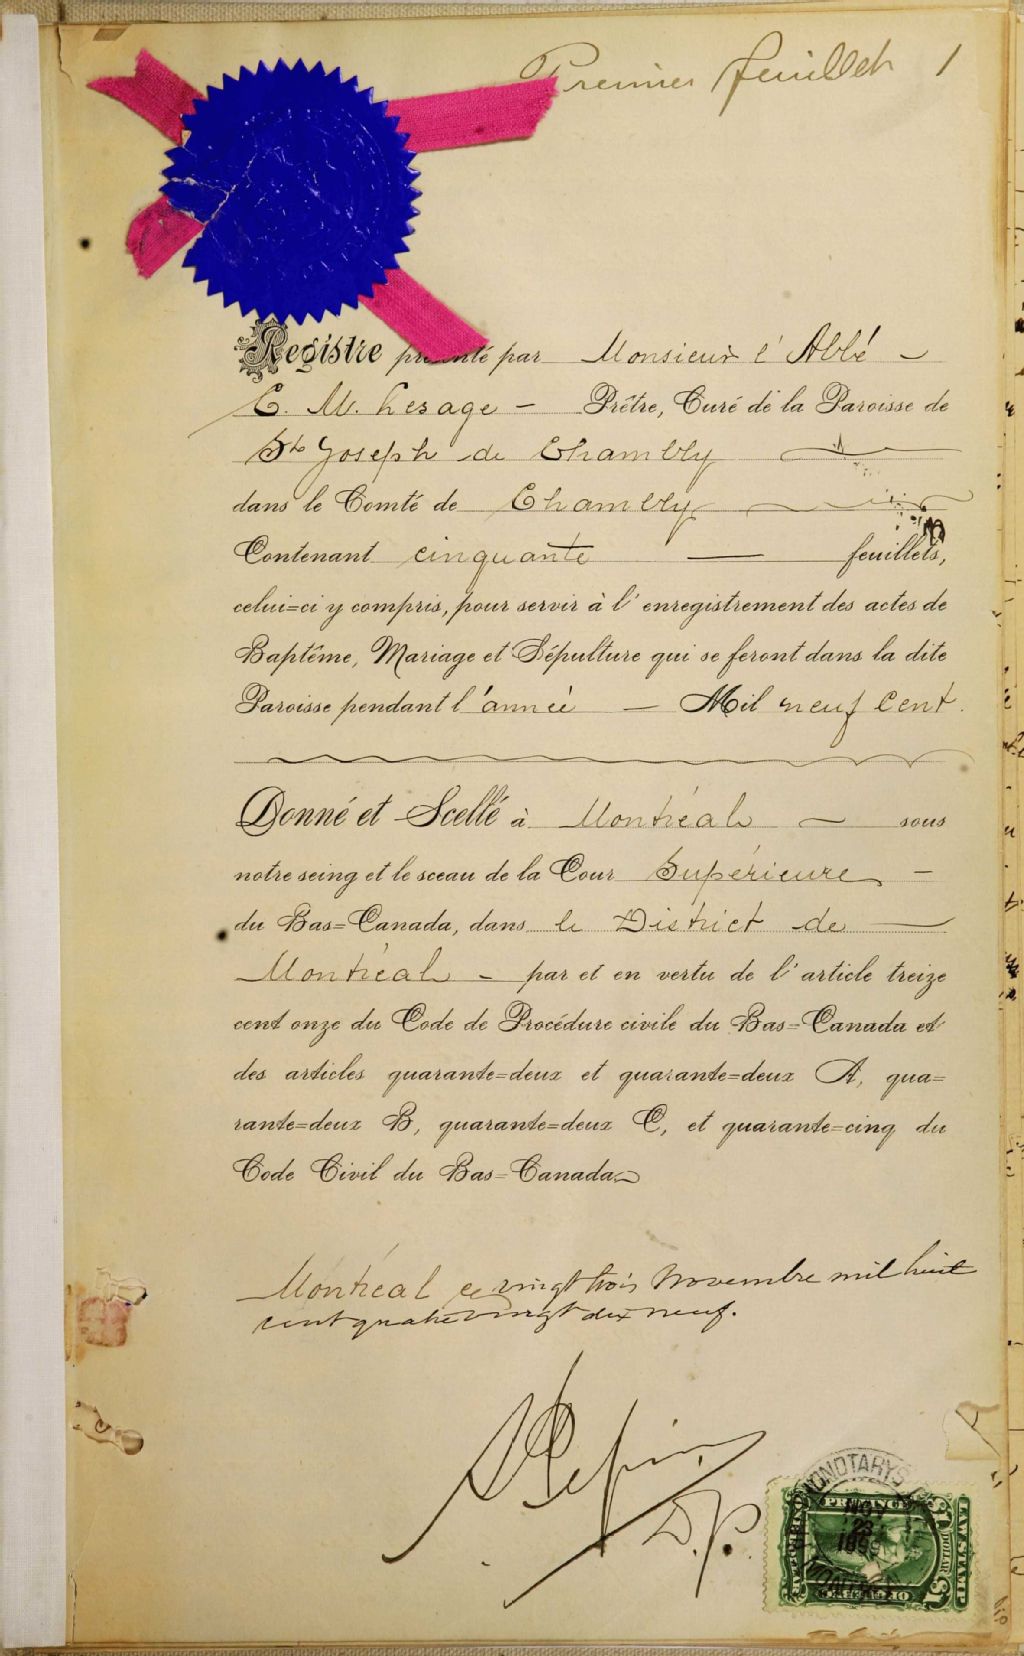 Premier feuillet 1
Registre présenté par Monsieur l'Abbé
E. M. Lesage - Prêtre, Curé de la Paroisse de
St Joseph de Chambly
dans le Comté de Chambly
Contenant cinquante — feuillets,
celui=ci y compris, pour servir à l'enregistrement des actes de
Baptême, Mariage et Sépulture qui se feront dans la dite
Paroisse pendant l'année — Mil neuf cent.
Donné et Scellé à Montréal — sous
notre seing et le sceau de la Cour Supérieure -
du Bas=Canada, dans le District de —
Montréal - par et en vertu de l'article treize
cent onze du Code de Procédure civile du Bas=Canada et
des articles quarante=deux et quarante=deux A, qua=
rante=deux B, quarante=deux C, et quarante=cinq du
Code Civil du Bas=Canada
Montréal ce vingt trois Novembre mil huit
cent quatre vingt dix neuf.
A Pepin
D.P.
PROTHONOTARYS
NOV
23
1899
MONTREAL
LAW STAMP
$1 DOLLAR $1
PROVINCE
QUEBEC